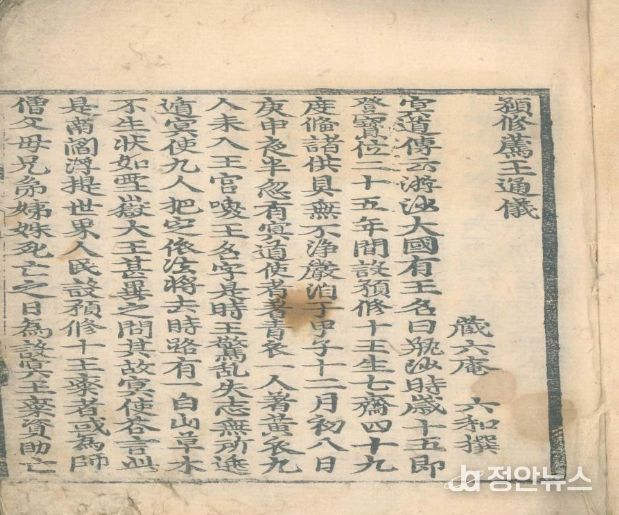 預修薦王通儀
藏六庵 六和撰
冥道傳云游沙大國有王名曰甁沙時歲十五即
登寶位二十五年間設預修十王生七齋四十九
度備諸供具無不淨嚴洎于甲子十二月初八日
庚申夜半忽有冥道使者着靑衣一人着黃衣九
人來入王宮喚王名字是時王驚乱失志無所進
道冥使九人把 依法將去時路有一白山草木
不生狀如 嶽大王甚異之問其故冥使答言此
是南閻浮提世界人民設預修十王齋者或爲師
僧父母兄弟姊妹死亡之日爲設冥王齋資助亡
정안뉴스